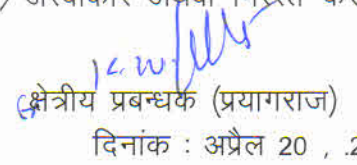 क्षेत्रीय प्रबन्धक (प्रयागराज)
दिनांक : अप्रैल 20 , .2